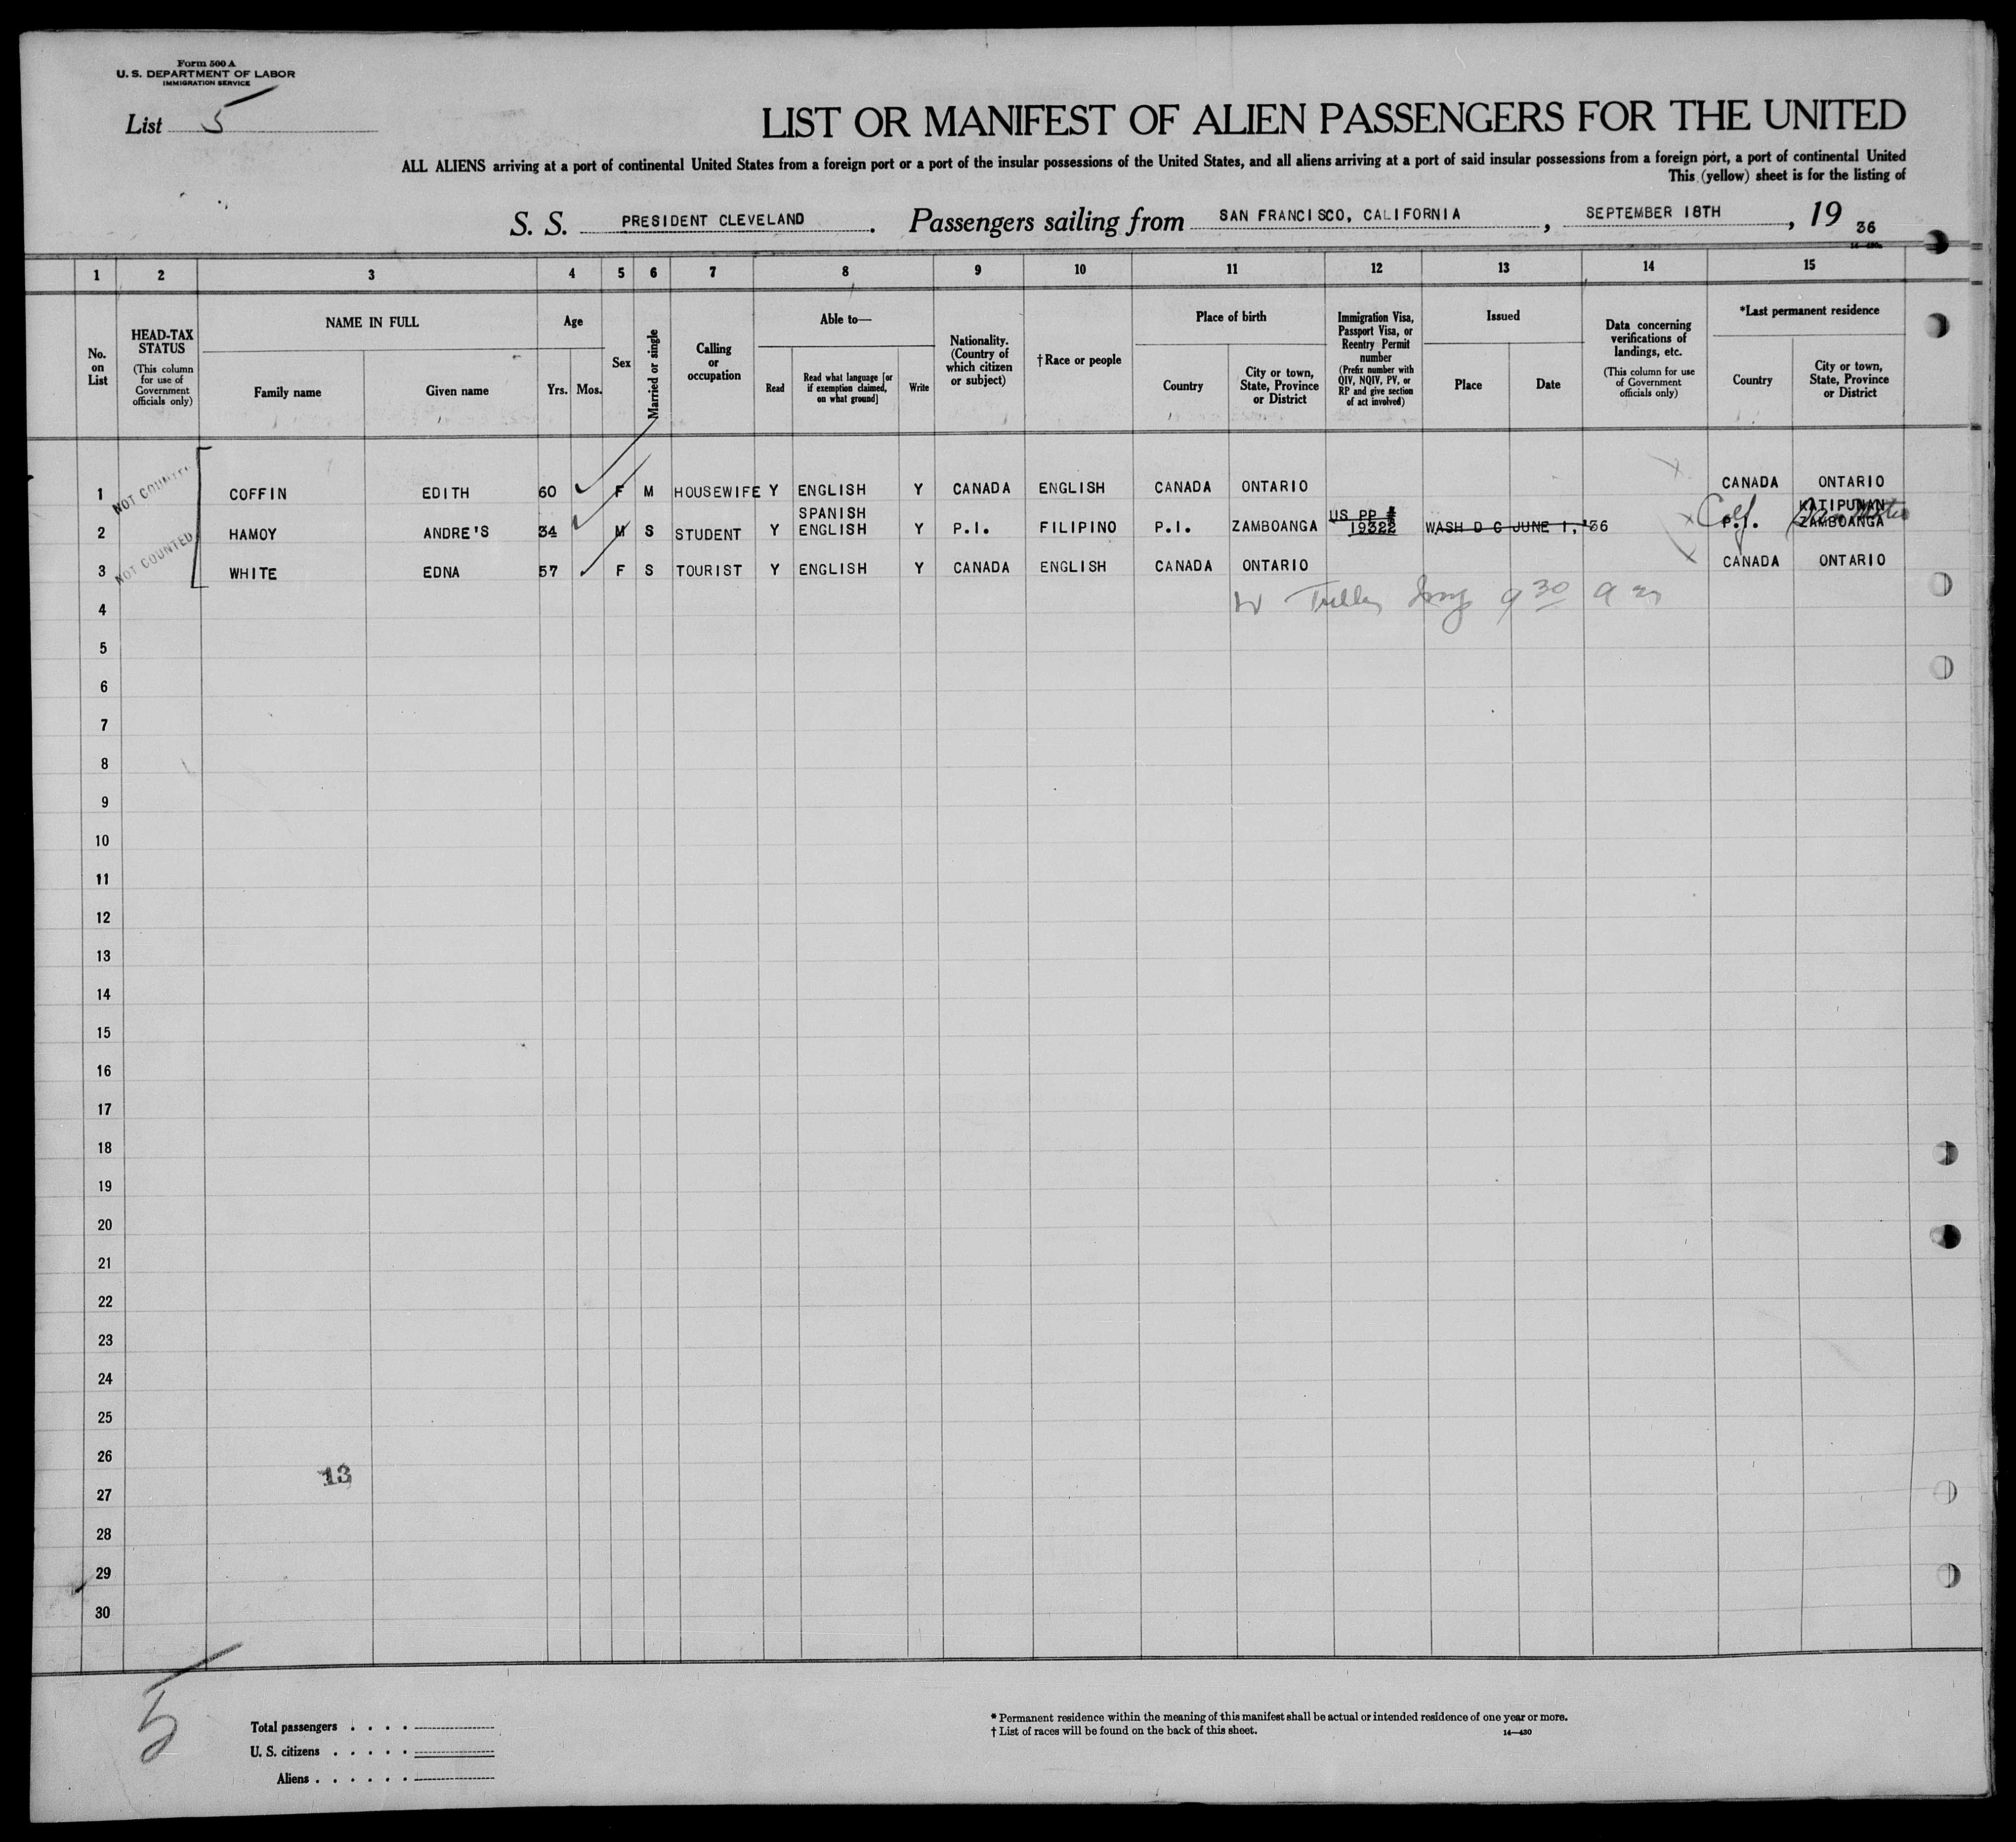 Form 500 A
U. S. DEPARTMENT OF LABOR
IMMIGRATION SERVICE
List 5
LIST OR MANIFEST OF ALIEN PASSENGERS FOR THE UNITED
ALL ALIENS arriving at a port of continental United States from a foreign port or a port of the insular possessions of the United States, and all aliens arriving at a port of said insular possessions from a foreign port, a port of continental United
This (yellow) sheet is for the listing of
S. S. PRESIDENT CLEVELAND. Passengers sailing from SAN FRANCISCO, CALIFORNIA, SEPTEMBER 18TH, 19 36
1 2 3 4 5 6 7 8 9 10 11 12 13 14 15
No. on List
HEAD-TAX STATUS
(This column for use of Government officials only)
NAME IN FULL
Family name
Given name
Age
Yrs. Mos.
Sex
Married or single
Calling or occupation
Able to—
Read
Read what language [or if exemption claimed, on what ground]
Write
Nationality. (Country of which citizen or subject)
†Race or people
Place of birth
Country
City or town, State, Province or District
Immigration Visa, Passport Visa, or Reentry Permit number
(Prefix number with QIV, NQIV, PV, or RP and give section of act involved)
Issued
Place
Date
Data concerning verifications of landings, etc.
(This column for use of Government officials only)
*Last permanent residence
Country
City or town, State, Province or District
1 NOT COUNTED COFFIN EDITH 60 F M HOUSEWIFE Y ENGLISH Y CANADA ENGLISH CANADA ONTARIO CANADA ONTARIO
2 HAMOY ANDRE'S 34 M S STUDENT Y SPANISH ENGLISH Y P.I. FILIPINO P.I. ZAMBOANGA US PP # 19322 WASH D C JUNE 1, '36 P.I. KATIPUNAN ZAMBOANGA Calif
3 NOT COUNTED WHITE EDNA 57 F S TOURIST Y ENGLISH Y CANADA ENGLISH CANADA ONTARIO CANADA ONTARIO
4 9 30 a m
5
6
7
8
9
10
11
12
13
14
15
16
17
18
19
20
21
22
23
24
25
26
13
27
28
29
30
5
Total passengers . . . .
U. S. citizens . . . . .
Aliens . . . . . .
* Permanent residence within the meaning of this manifest shall be actual or intended residence of one year or more.
† List of races will be found on the back of this sheet.
14—430